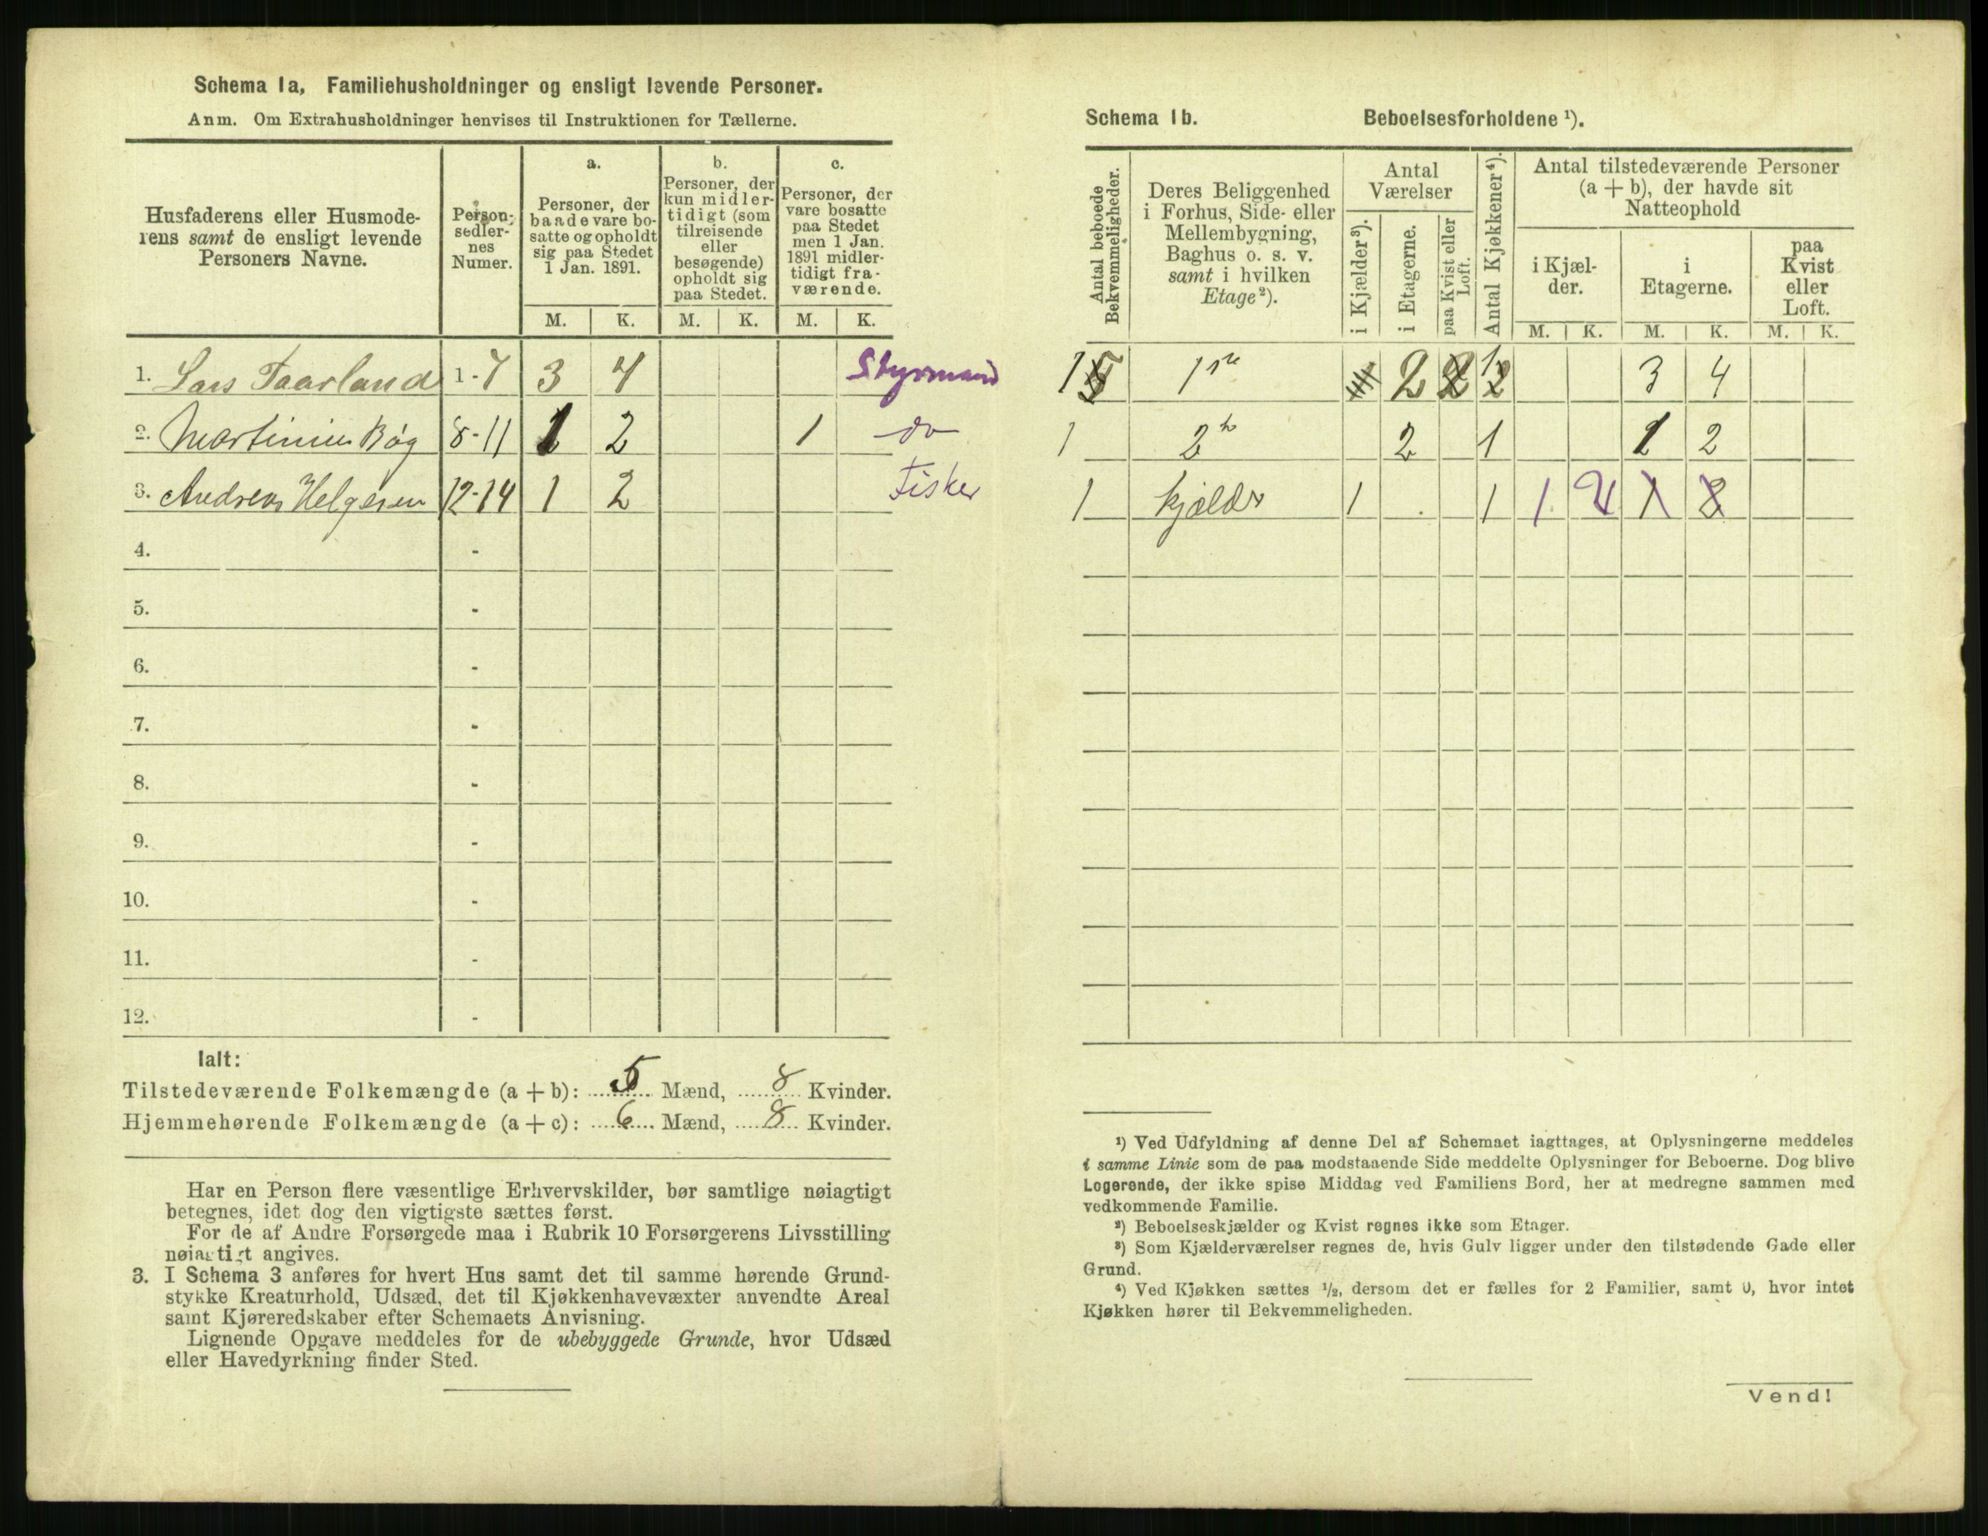 Schema 1a, Familiehusholdninger og ensligt levende Personer.
Anm. Om Extrahusholdninger henvises til Instruktionen for Tællerne.
Husfaderens eller Husmode-
rens samt de ensligt levende
Personers Navne.
Person-
sedler-
nes
Numer.
a.
Personer, der
baade vare bo-
satte og opholdt
sig paa Stedet
1 Jan. 1891.
b.
Personer, der
kun midler-
tidigt (som
tilreisende
eller
besøgende)
opholdt sig
paa Stedet.
c.
Personer, der
vare bosatte
paa Stedet
men 1 Jan.
1891 midler-
tidigt fra-
værende.
M. K. M. K. M. K.
1. Lars Taarland 1-7 3 4 Styrmand
2. Martinius Bøg 8-11 1 2 1 do
3. Andreas Helgesen 12-14 1 2 Fisker
4. -
5. -
6. -
7. -
8. -
9. -
10. -
11. -
12. -
Ialt:
Tilstedeværende Folkemængde (a + b): 5 Mænd, 8 Kvinder.
Hjemmehørende Folkemængde (a + c): 6 Mænd, 8 Kvinder.
Har en Person flere væsentlige Erhvervskilder, bør samtlige nøiagtigt
betegnes, idet dog den vigtigste sættes først.
For de af Andre Forsørgede maa i Rubrik 10 Forsørgerens Livsstilling
nøiagtigt angives.
3. I Schema 3 anføres for hvert Hus samt det til samme hørende Grund-
stykke Kreaturhold, Udsæd, det til Kjøkkenhavevæxter anvendte Areal
samt Kjøreredskaber efter Schemaets Anvisning.
Lignende Opgave meddeles for de ubebyggede Grunde, hvor Udsæd
eller Havedyrkning finder Sted.
Schema 1b. Beboelsesforholdene ¹).
Antal beboede
Bekvemmeligheder.
Deres Beliggenhed
i Forhus, Side- eller
Mellembygning,
Baghus o. s. v.
samt i hvilken
Etage²).
Antal
Værelser
i Kjælder³).
i Etagerne.
paa Kvist eller
Loft.
Antal Kjøkkener⁴).
Antal tilstedeværende Personer
(a + b), der havde sit
Natteophold
i Kjæl-
der.
i
Etagerne.
paa
Kvist
eller
Loft.
M. K. M. K. M. K.
1 5 1ste 2 2 1 2 3 4
1 2 2 1 1 2
1 kjælder 1 1 1 2 1 2
¹) Ved Udfyldning af denne Del af Schemaet iagttages, at Oplysningerne meddeles
i samme Linie som de paa modstaaende Side meddelte Oplysninger for Beboerne. Dog blive
Logerende, der ikke spise Middag ved Familiens Bord, her at medregne sammen med
vedkommende Familie.
²) Beboelseskjælder og Kvist regnes ikke som Etager.
³) Som Kjælderværelser regnes de, hvis Gulv ligger under den tilstødende Gade eller
Grund.
⁴) Ved Kjøkken sættes ½, dersom det er fælles for 2 Familier, samt 0, hvor intet
Kjøkken hører til Bekvemmeligheden.
Vend!